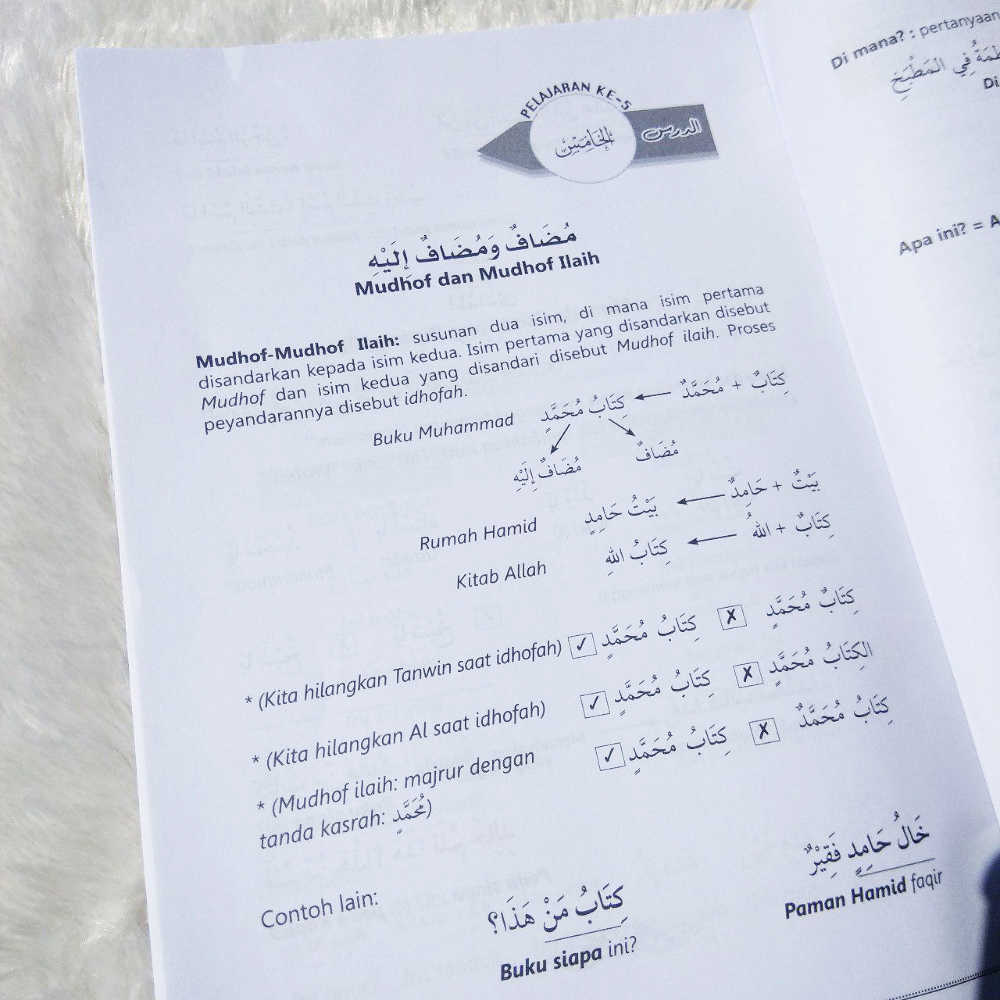 PELAJARAN KE-5
الدرس الخامس
مُضَافٌ وَمُضَافٌ إِلَيْهِ
Mudhof dan Mudhof Ilaih
Mudhof-Mudhof Ilaih: susunan dua isim, di mana isim pertama
disandarkan kepada isim kedua. Isim pertama yang disandarkan disebut
Mudhof dan isim kedua yang disandari disebut Mudhof ilaih. Proses
peyandarannya disebut idhofah.
Buku Muhammad كِتَابٌ + مُحَمَّدٌ ← كِتَابُ مُحَمَّدٍ
مُضَافٌ مُضَافٌ إِلَيْهِ
Rumah Hamid بَيْتٌ + حَامِدٌ ← بَيْتُ حَامِدٍ
Kitab Allah كِتَابٌ + اللهُ ← كِتَابُ اللهِ
* (Kita hilangkan Tanwin saat idhofah) ✓ كِتَابُ مُحَمَّدٍ ✗ كِتَابٌ مُحَمَّدٍ
* (Kita hilangkan Al saat idhofah) ✓ كِتَابُ مُحَمَّدٍ ✗ الكِتَابُ مُحَمَّدٍ
* (Mudhof ilaih: majrur dengan ✓ كِتَابُ مُحَمَّدٍ ✗ كِتَابُ مُحَمَّدٌ
tanda kasrah: مُحَمَّدٍ)
Contoh lain:
كِتَابُ مَنْ هَذَا؟
Buku siapa ini?
خَالُ حَامِدٍ فَقِيْرٌ
Paman Hamid faqir
Di mana? : pertanyaan
فِي المَطْبَخِ
Apa ini? =